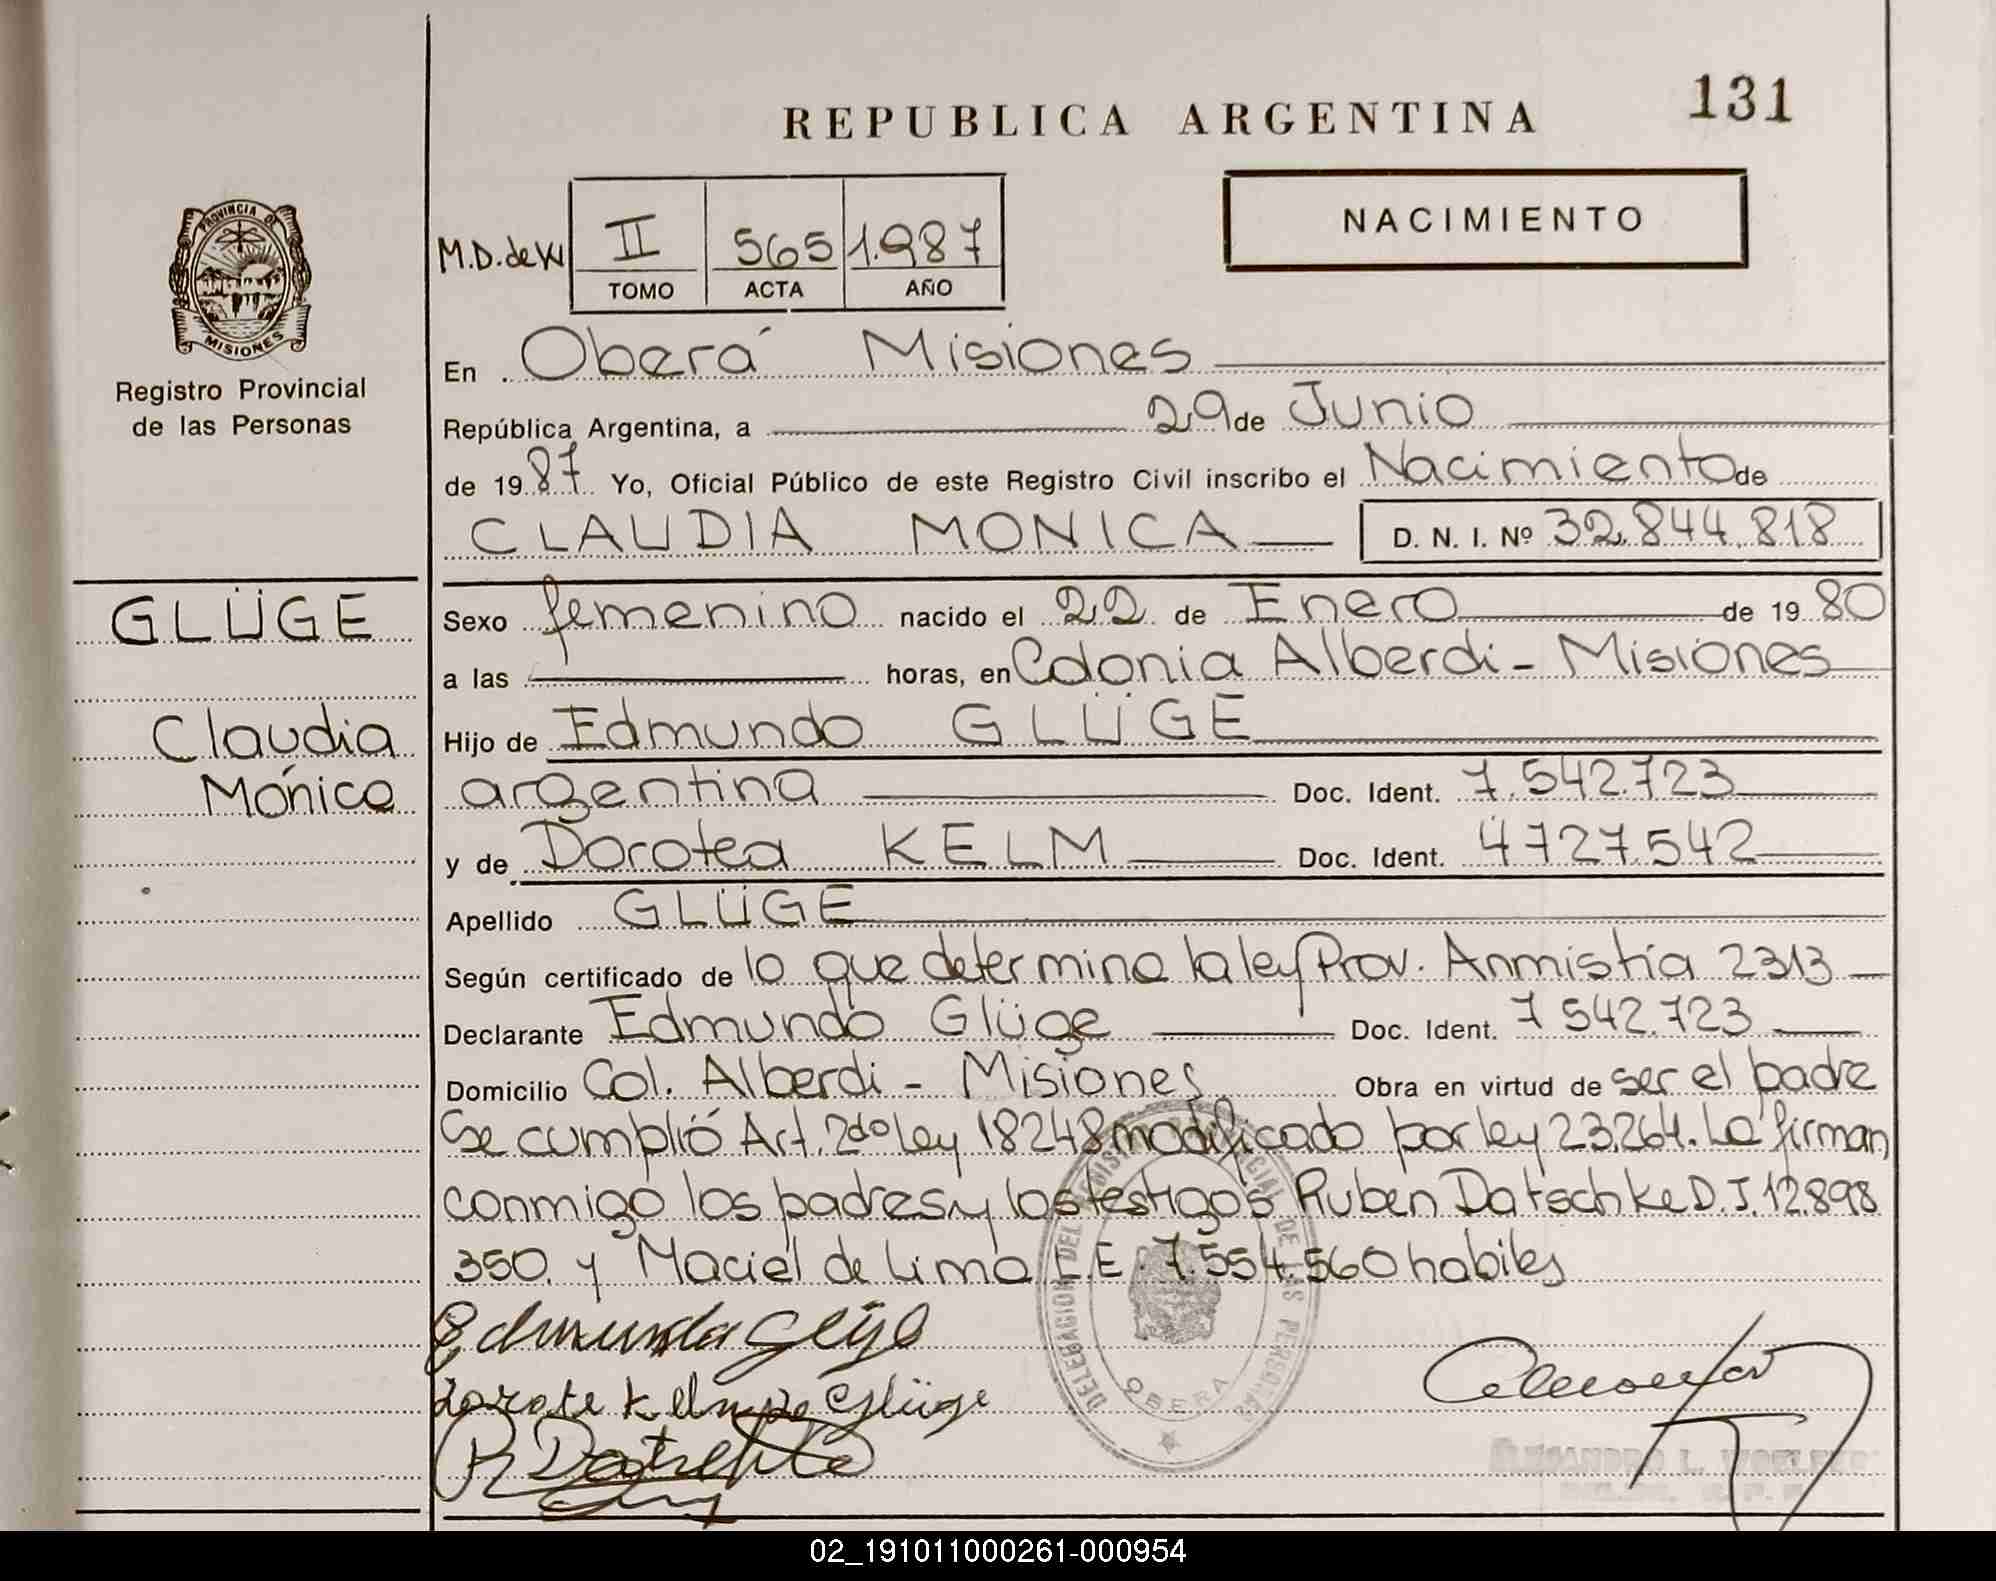 131
REPUBLICA ARGENTINA
NACIMIENTO
M.D.de W II 565 1.987
TOMO ACTA AÑO
PROVINCIA DE
MISIONES
Registro Provincial
de las Personas
En Oberá Misiones
República Argentina, a 29 de Junio
de 1987 Yo, Oficial Público de este Registro Civil inscribo el Nacimiento de
CLAUDIA MONICA D. N. I. Nº 32.844.818
GLÜGE
Claudia
Mónica
Sexo femenino nacido el 22 de Enero de 1980
a las horas, en Colonia Alberdi - Misiones
Hijo de Edmundo GLÜGE
argentina Doc. Ident. 7.542.723
y de Dorotea KELM Doc. Ident. 4727.542
Apellido GLÜGE
Según certificado de lo que determina la ley Prov. Anmistía 2313
Declarante Edmundo Glüge Doc. Ident. 7 542.723
Domicilio Col. Alberdi - Misiones Obra en virtud de ser el padre
Se cumplió Art. 2do Ley 18248 modificado por ley 23.264. La firman
conmigo los padres y los testigos Ruben Datschke D.I. 12.898
350. y Maciel de Lima L.E. 7.554.560 habiles
Edmundo Glüge
Dorote Kelm de Glüge
R Datschke
DELEGACION DEL REGISTRO PROVINCIAL DE LAS PERSONAS
OBERA
02_191011000261-000954